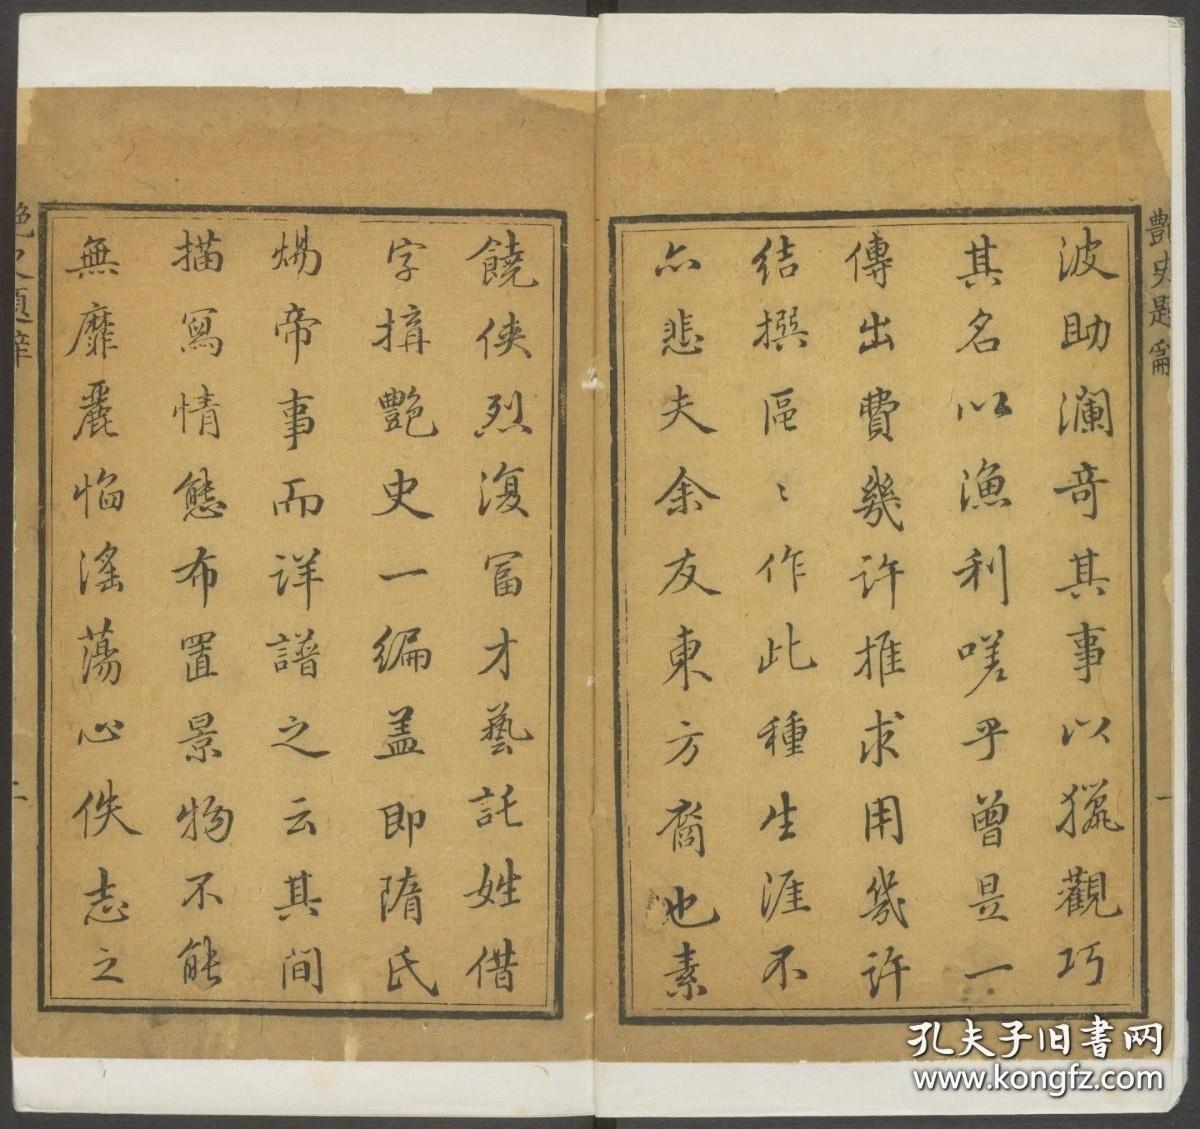 波助澜奇其事以獵觀巧
其名以漁利嗟乎曾是一
傳出費幾許推求用幾許
結撰區〻作此種生涯不
亦悲夫余友東方裔也素
饒俠烈復冨才藝託姓借
字搆艷史一編盖即隋氏
煬帝事而詳譜之云其間
描寫情態布置景物不能
無靡麗慆滛蕩心佚志之
艷史題辭
一
艷史題辭
二
孔夫子旧书网
www.kongfz.com